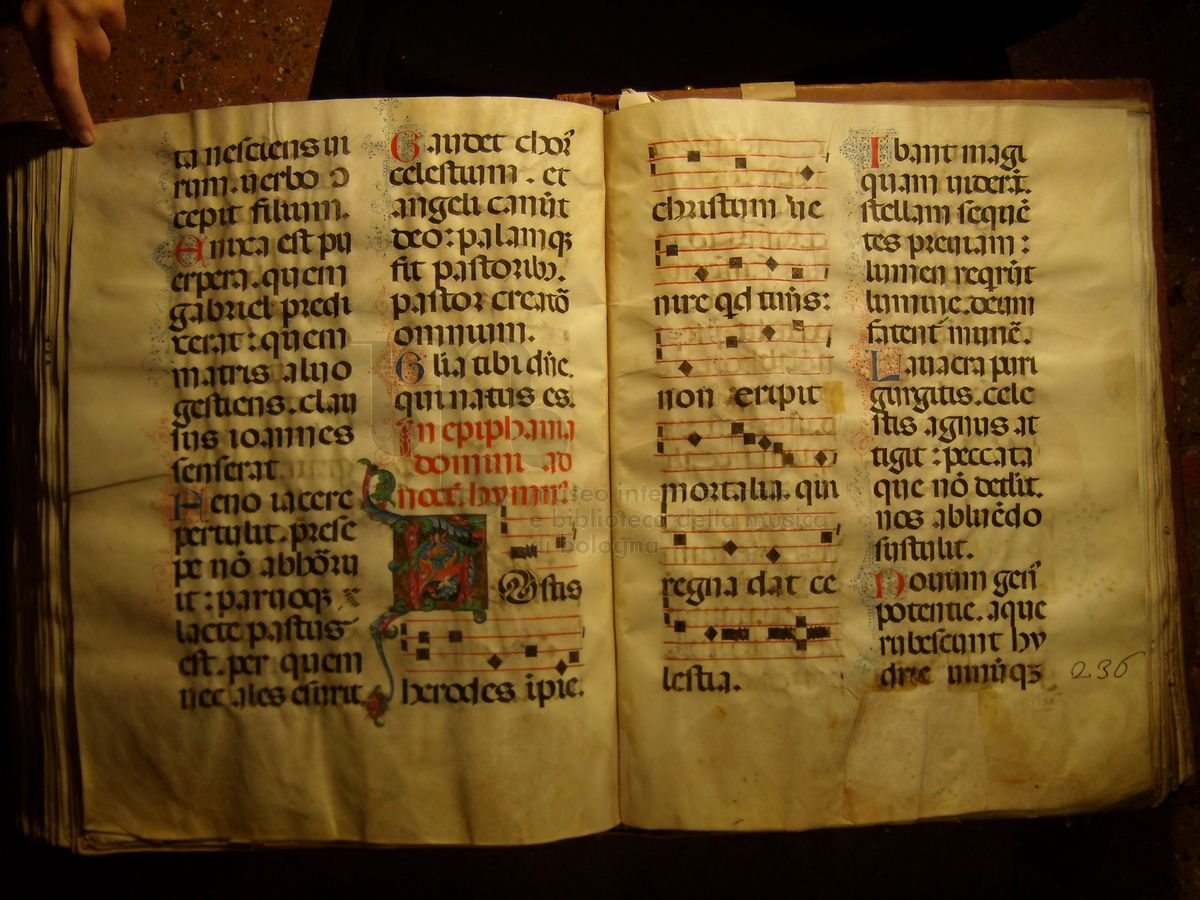 ta nesciens ui
rum. uerbo ɔ
cepit filium.
Enixa est pu
erpera. quem
gabriel predi
xerat: quem
matris aluo
gestiens. clau
sus ioannes
senserat
Feno iacere
pertulit. prese
pe nō abhōru
it: paruoqꝫ
lacte pastus
est. per quem
nec ales esurit
Gaudet choꝝ
celestium. et
angeli canūt
deo: palamqꝫ
fit pastoribꝰ.
pastor creatō
omnium.
Glīa tibi dn̄e.
qui natus es.
In epiphania
domini ad
noct. hymn.
Ostis
herodes ipie.
christum ue
nire qd times:
non eripit
mortalia. qui
regna dat ce
lestia.
Ibant magi
quam uiderāt.
stellam sequē
tes preuiam:
lumen reqrūt
lumine. deum
fatent munē.
Lauacra puri
gurgitis. cele
stis agnus at
tigit: peccata
que nō detlit.
nos abluēdo
sustulit.
Nouum gen
potentie. aque
rubescunt hy
drie uinūqꝫ
236
museo inte
e biblioteca della musica
di bologna